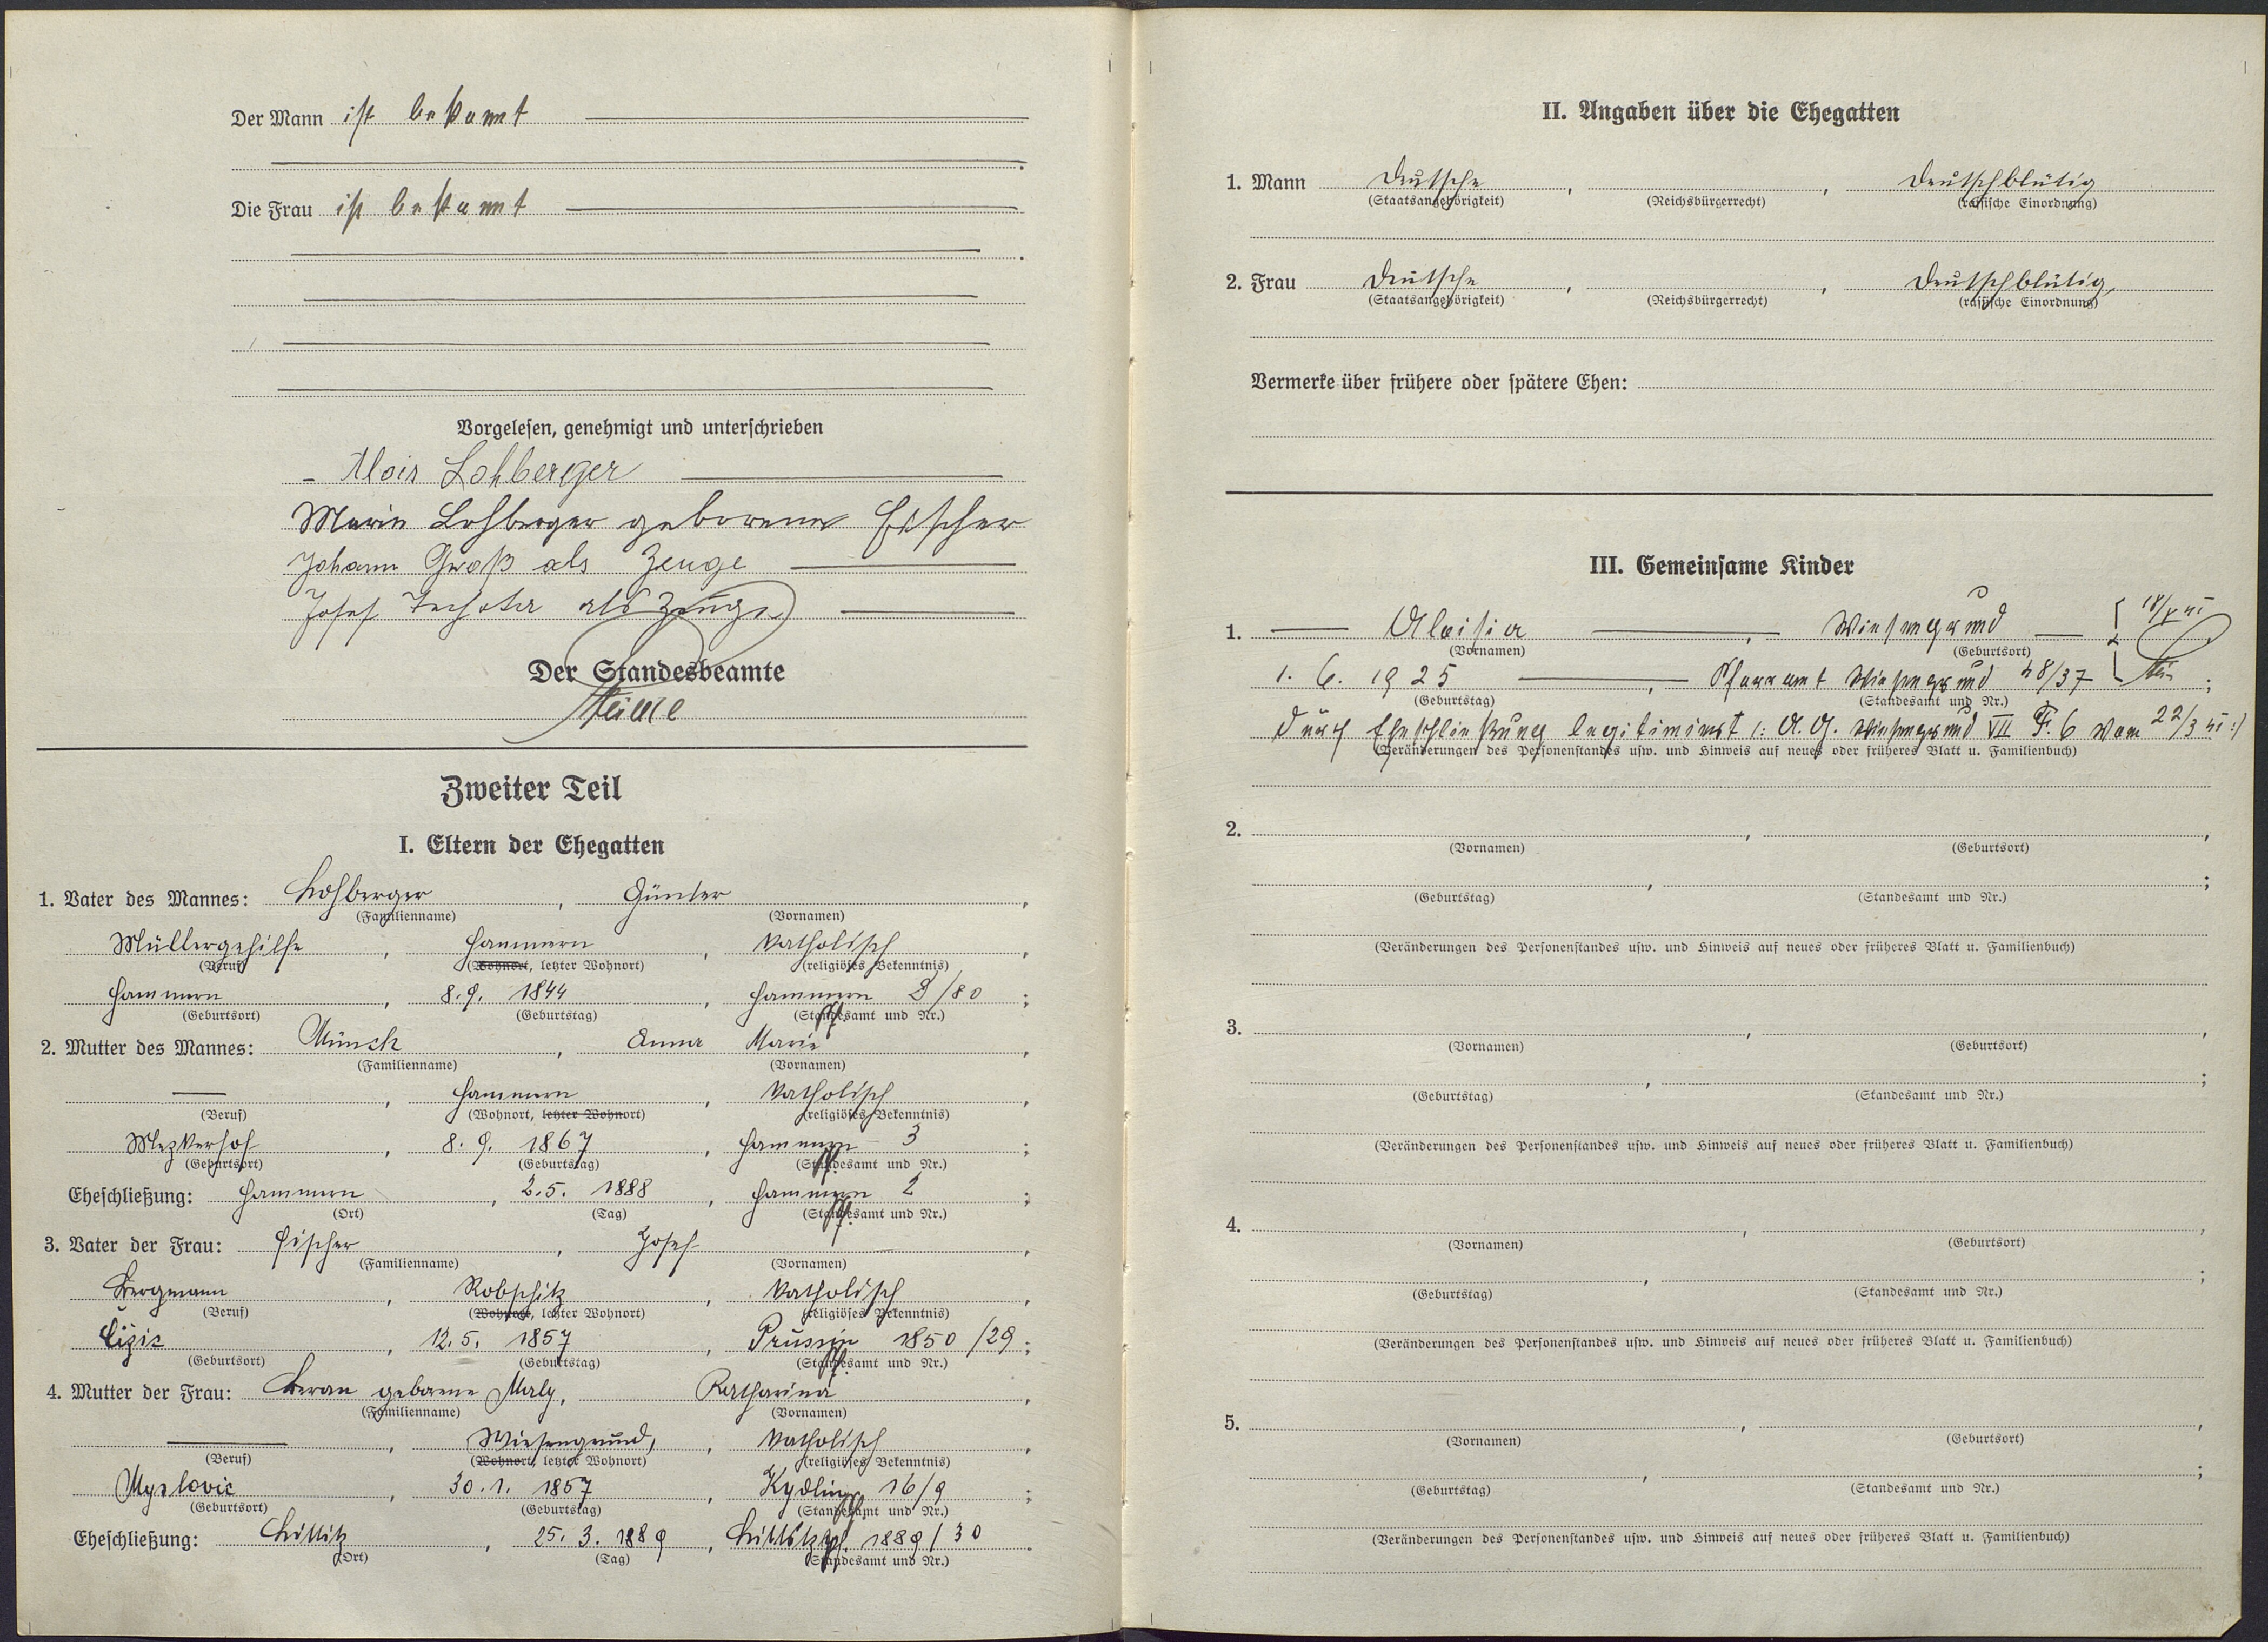 Der Mann ist bekannt
Die Frau ist bekannt
Vorgelesen, genehmigt und unterschrieben
Alois Lohberger
Marie Lohberger geborene Fischer
Johann Groß als Zeuge
Josef als Zeuge
Der Standesbeamte
Zweiter Teil
I. Eltern der Ehegatten
1. Vater des Mannes: Lohberger, Günter,
(Familienname) (Vornamen)
Müllergehilfe, Hammern, katholisch,
(Beruf) (Wohnort, letzter Wohnort) (religiöses Bekenntnis)
Hammern, 8.9. 1844, Hammern 2/80;
(Geburtsort) (Geburtstag) (Standesamt und Nr.)
2. Mutter des Mannes: Münch, Anna Marie,
(Familienname) (Vornamen)
—, Hammern, katholisch,
(Beruf) (Wohnort, letzter Wohnort) (religiöses Bekenntnis)
Mezkerhof, 8. 9. 1867, Hammern 3;
(Geburtsort) (Geburtstag) (Standesamt und Nr.)
Eheschließung: Hammern, 2.5. 1888, Hammern 2;
(Ort) (Tag) (Standesamt und Nr.)
3. Vater der Frau: Fischer, Josef,
(Familienname) (Vornamen)
Bergmann, Robschitz, katholisch,
(Beruf) (Wohnort, letzter Wohnort) (religiöses Bekenntnis)
Čižic, 12.5. 1857, Prusin 1850/29;
(Geburtsort) (Geburtstag) (Standesamt und Nr.)
4. Mutter der Frau: Beran geborene Maly, Katharina,
(Familienname) (Vornamen)
—, Wiesengrund, katholisch,
(Beruf) (Wohnort, letzter Wohnort) (religiöses Bekenntnis)
Myslovic, 30.1. 1857, Kydlin 16/9;
(Geburtsort) (Geburtstag) (Standesamt und Nr.)
Eheschließung: Littitz, 25. 3. 1889, Littitz 1889/30.
(Ort) (Tag) (Standesamt und Nr.)
II. Angaben über die Ehegatten
1. Mann Deutsche, , Deutschblütig
(Staatsangehörigkeit) (Reichsbürgerrecht) (rassische Einordnung)
2. Frau Deutsche, , Deutschblütig,
(Staatsangehörigkeit) (Reichsbürgerrecht) (rassische Einordnung)
Vermerke über frühere oder spätere Ehen:
III. Gemeinsame Kinder
1. — Aloisia —, Wiesengrund —
(Vornamen) (Geburtsort)
1. 6. 1925 —, Pfarramt Wiesengrund 48/37;
(Geburtstag) (Standesamt und Nr.)
Durch Eheschließung legitimiert /: A. G. Wiesengrund VII P. 6 vom 22/3 41 :/
(Veränderungen des Personenstandes usw. und Hinweis auf neues oder früheres Blatt u. Familienbuch)
2. , ,
(Vornamen) (Geburtsort)
, ;
(Geburtstag) (Standesamt und Nr.)
(Veränderungen des Personenstandes usw. und Hinweis auf neues oder früheres Blatt u. Familienbuch)
3. , ,
(Vornamen) (Geburtsort)
, ;
(Geburtstag) (Standesamt und Nr.)
(Veränderungen des Personenstandes usw. und Hinweis auf neues oder früheres Blatt u. Familienbuch)
4. , ,
(Vornamen) (Geburtsort)
, ;
(Geburtstag) (Standesamt und Nr.)
(Veränderungen des Personenstandes usw. und Hinweis auf neues oder früheres Blatt u. Familienbuch)
5. , ,
(Vornamen) (Geburtsort)
, ;
(Geburtstag) (Standesamt und Nr.)
(Veränderungen des Personenstandes usw. und Hinweis auf neues oder früheres Blatt u. Familienbuch)